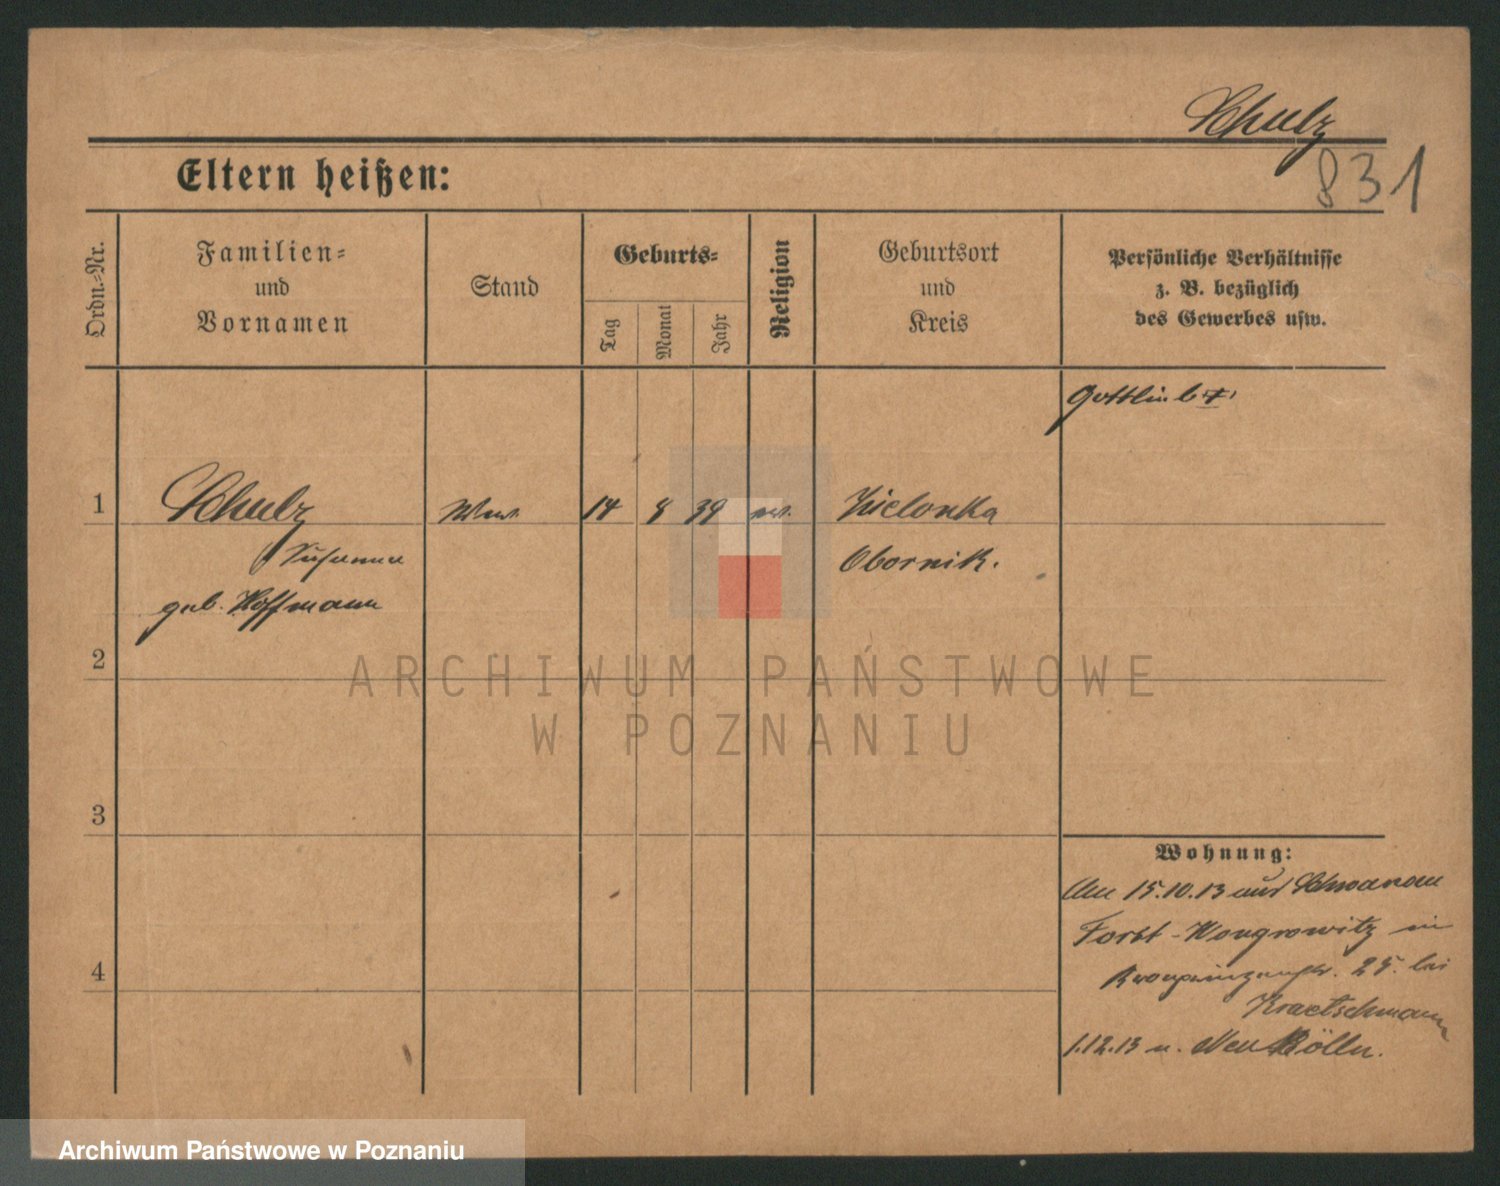 Schulz
831
Eltern heißen:
Ordn.-Nr.
Familien-
und
Vornamen
Stand
Geburts-
Tag
Monat
Jahr
Religion
Geburtsort
und
Kreis
Persönliche Verhältnisse
z. B. bezüglich
des Gewerbes usw.
Gottlieb †
1
Schulz
Wwe.
14
8
39
ev.
Zielonka
Susanna
Obornik.
geb. Hoffmann
2
3
4
Wohnung:
Am 15.10.13 aus Schwanau
Forst - Wongrowitz in
Kronprinzenstr. 25. bei
Kraetschmann
1.12.13 n. Neu Kölln.
ARCHIWUM PAŃSTWOWE
W POZNANIU
Archiwum Państwowe w Poznaniu